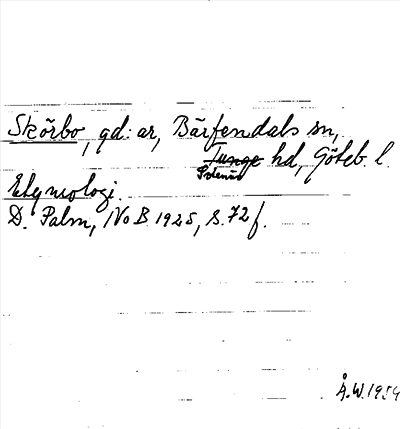 Skörbo, gd:ar, Bärfendals sn,
Tunge hd, Göteb. l.
Sotenäs
Etymologi.
D. Palm, NoB 1925, s. 72 f.
Å.W. 1954